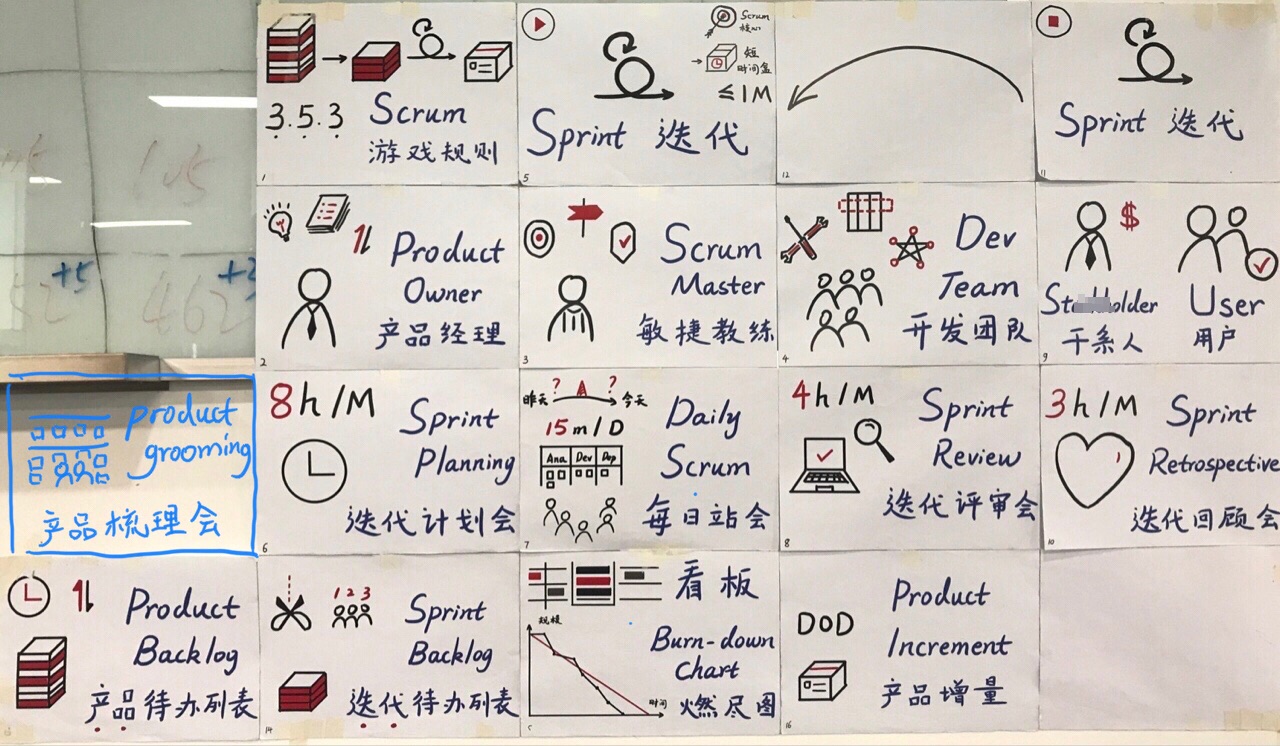 3.5.3
Scrum
游戏规则
1
Scrum
核心
短
时间盒
≤1M
Sprint 迭代
5
12
Sprint 迭代
11
Product
Owner
产品经理
2
Scrum
Master
敏捷教练
3
Dev
Team
开发团队
4
$
holder
干系人
User
用户
9
+5
462
product
grooming
产品梳理会
8h/M
Sprint
Planning
迭代计划会
6
昨天 ? ? 今天
15m/D
Ana Dev Dep
Daily
Scrum
每日站会
7
4h/M
Sprint
Review
迭代评审会
8
3h/M
Sprint
Retrospective
迭代回顾会
10
Product
Backlog
产品待办列表
1 2 3
Sprint
Backlog
迭代待办列表
14
看板
规模
时间
Burn-down
Chart
燃尽图
DOD
Product
Increment
产品增量
16